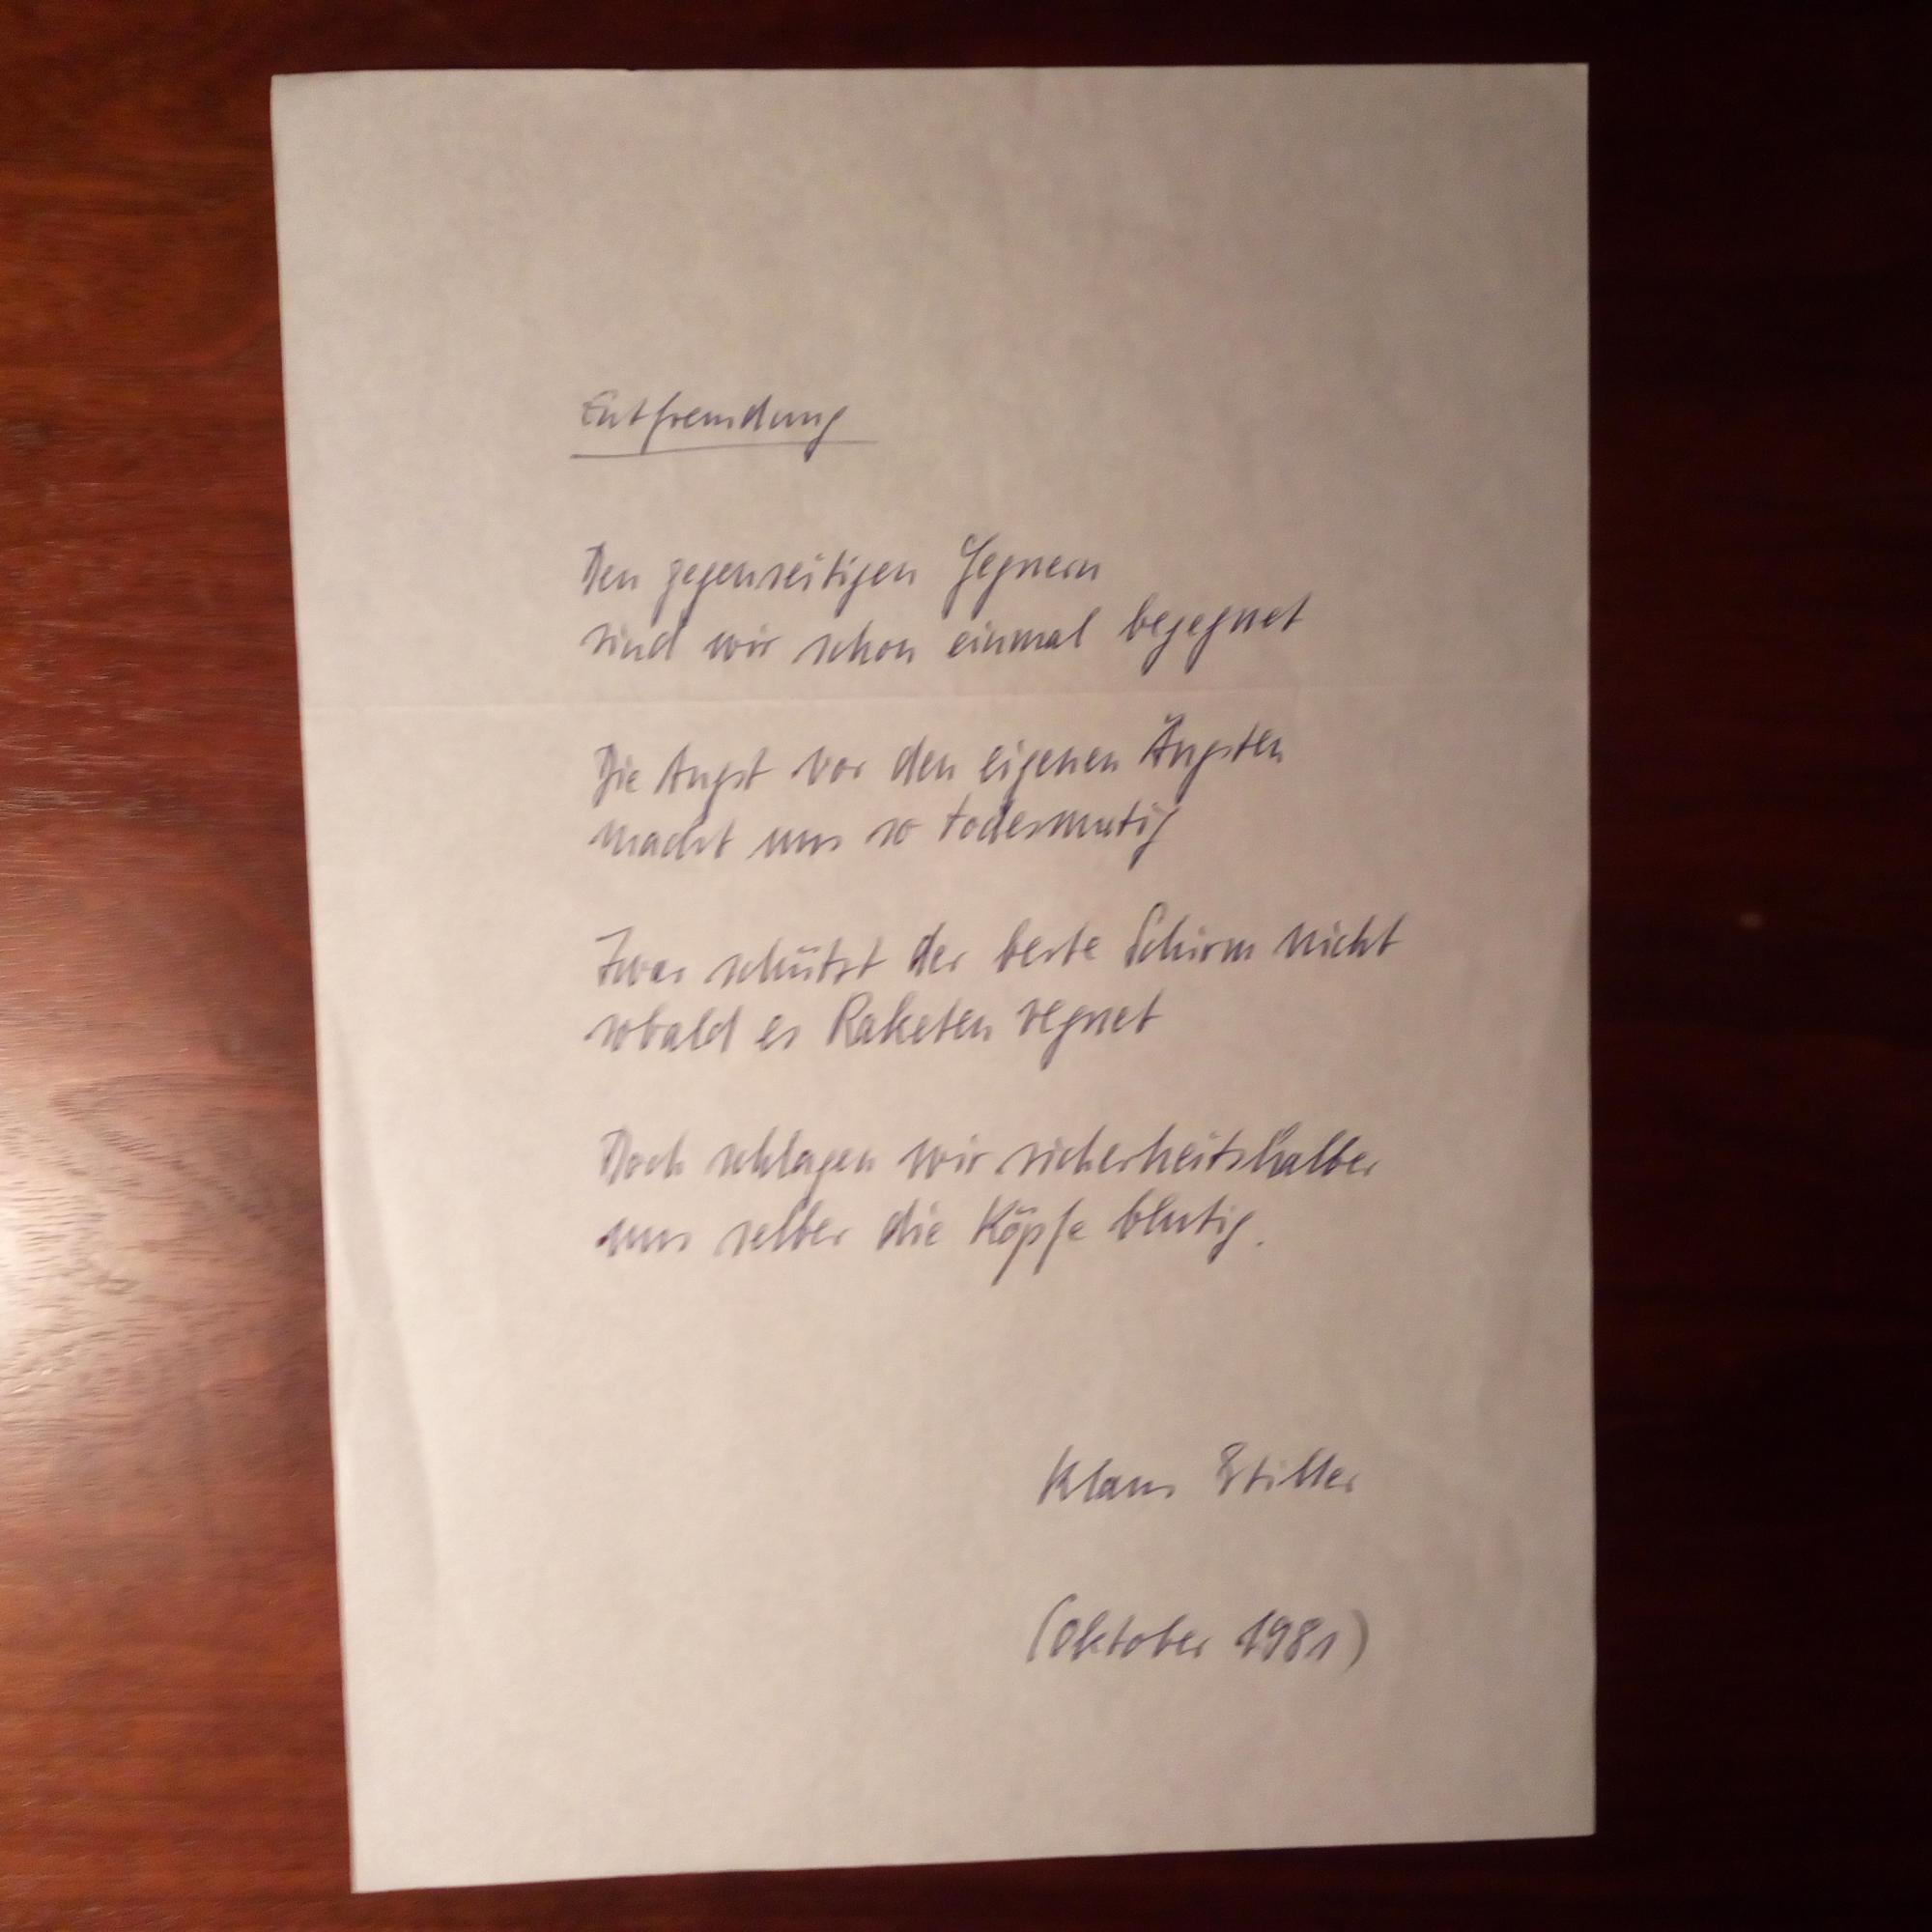 Entfremdung
Den gegenseitigen Gegnern
sind wir schon einmal begegnet
Die Angst vor den eigenen Ängsten
macht uns so todesmutig
Zwar schützt der beste Schirm nicht
sobald es Raketen regnet
Doch schlagen wir sicherheitshalber
uns selber die Köpfe blutig.
Klaus Stiller
(Oktober 1981)